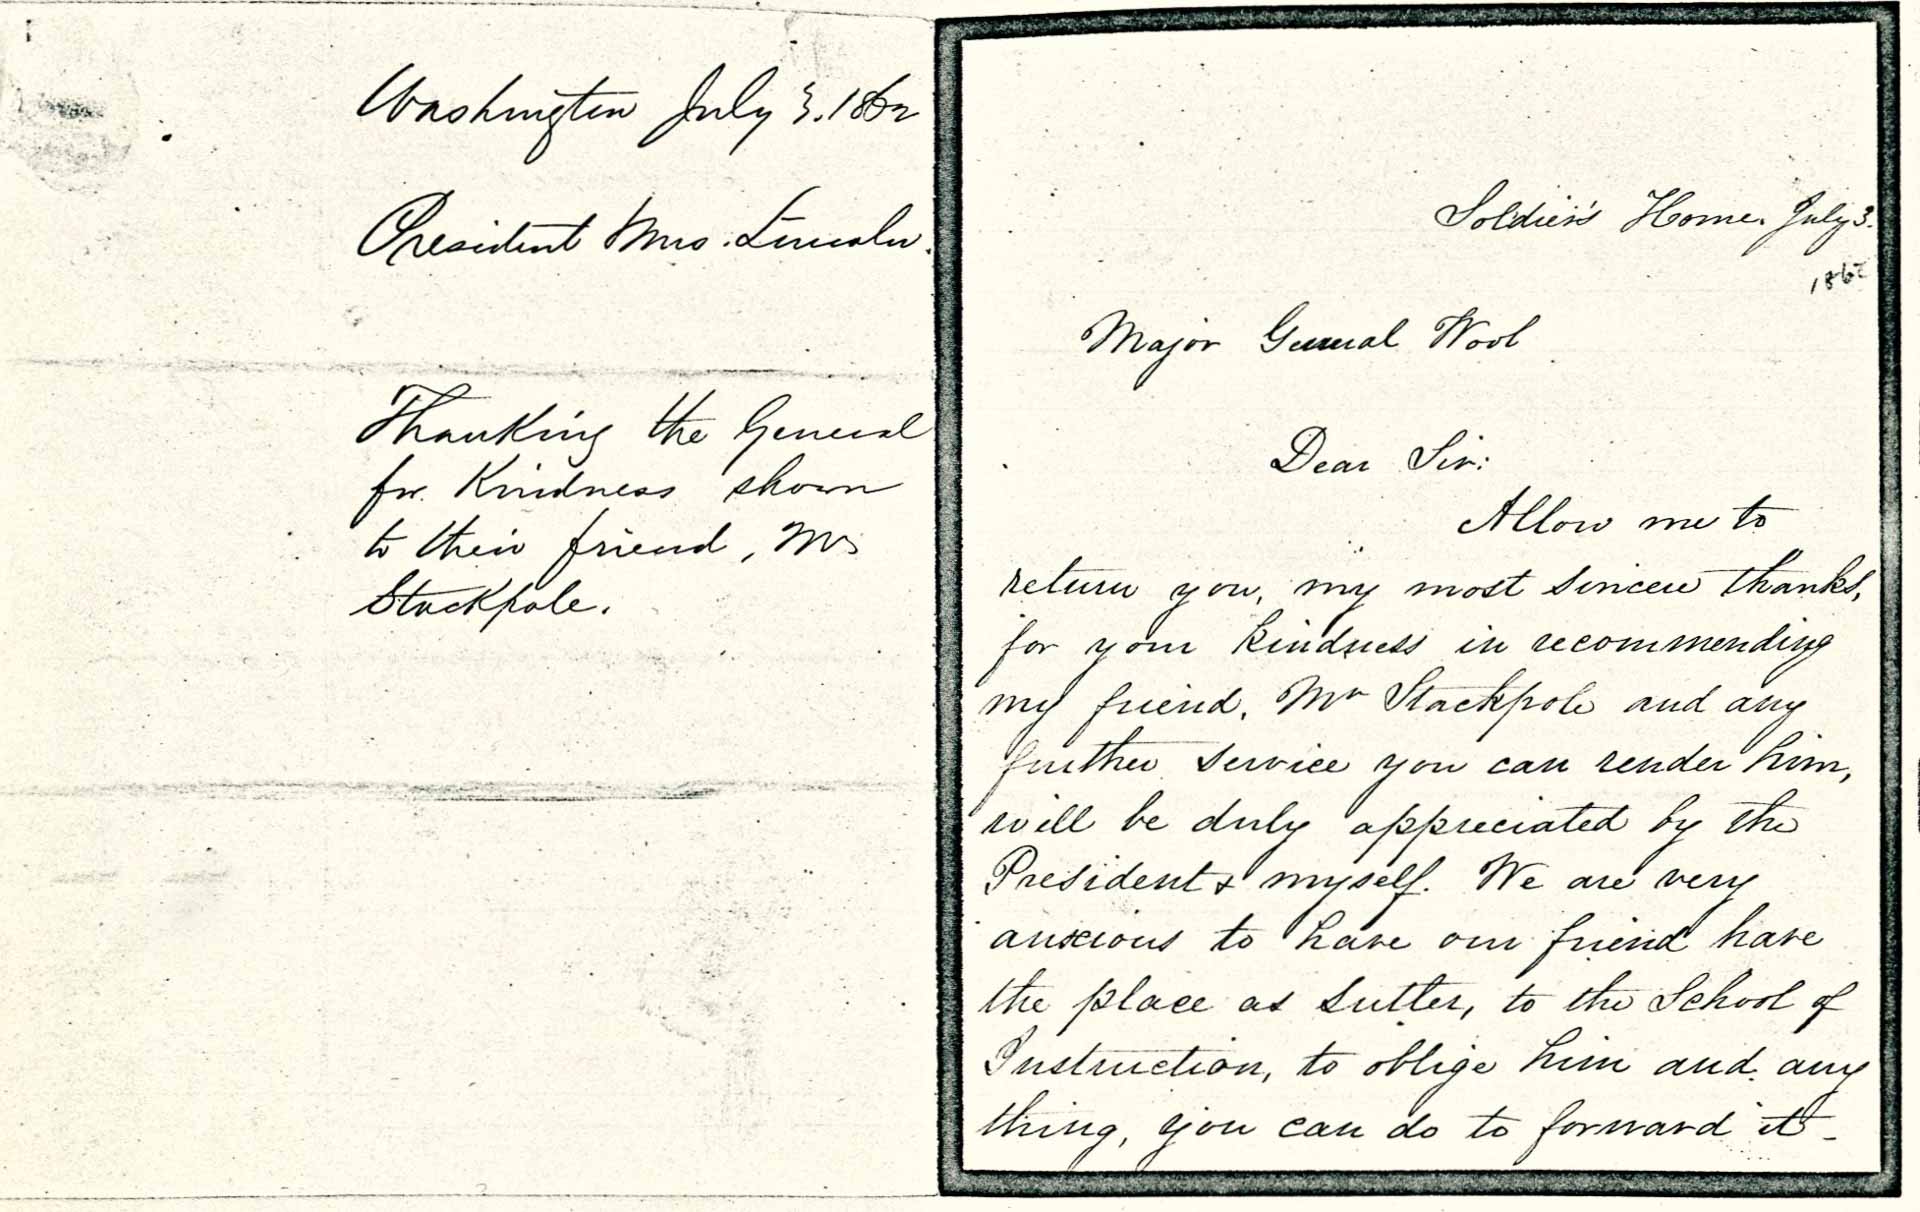 Washington July 3. 1862
President Mrs. Lincoln.
Thanking the General
for Kindness shown
to their friend, Mr
Stackpole.
Soldier's Home. July 3.
1862
Major General Wool
Dear Sir:
Allow me to
return you, my most sincere thanks,
for your kindness in recommending
my friend, Mr Stackpole and any
further service you can render him,
will be duly appreciated by the
President & myself. We are very
anxious to have our friend have
the place as sutler, to the School of
Instruction, to oblige him and any
thing, you can do to forward it -